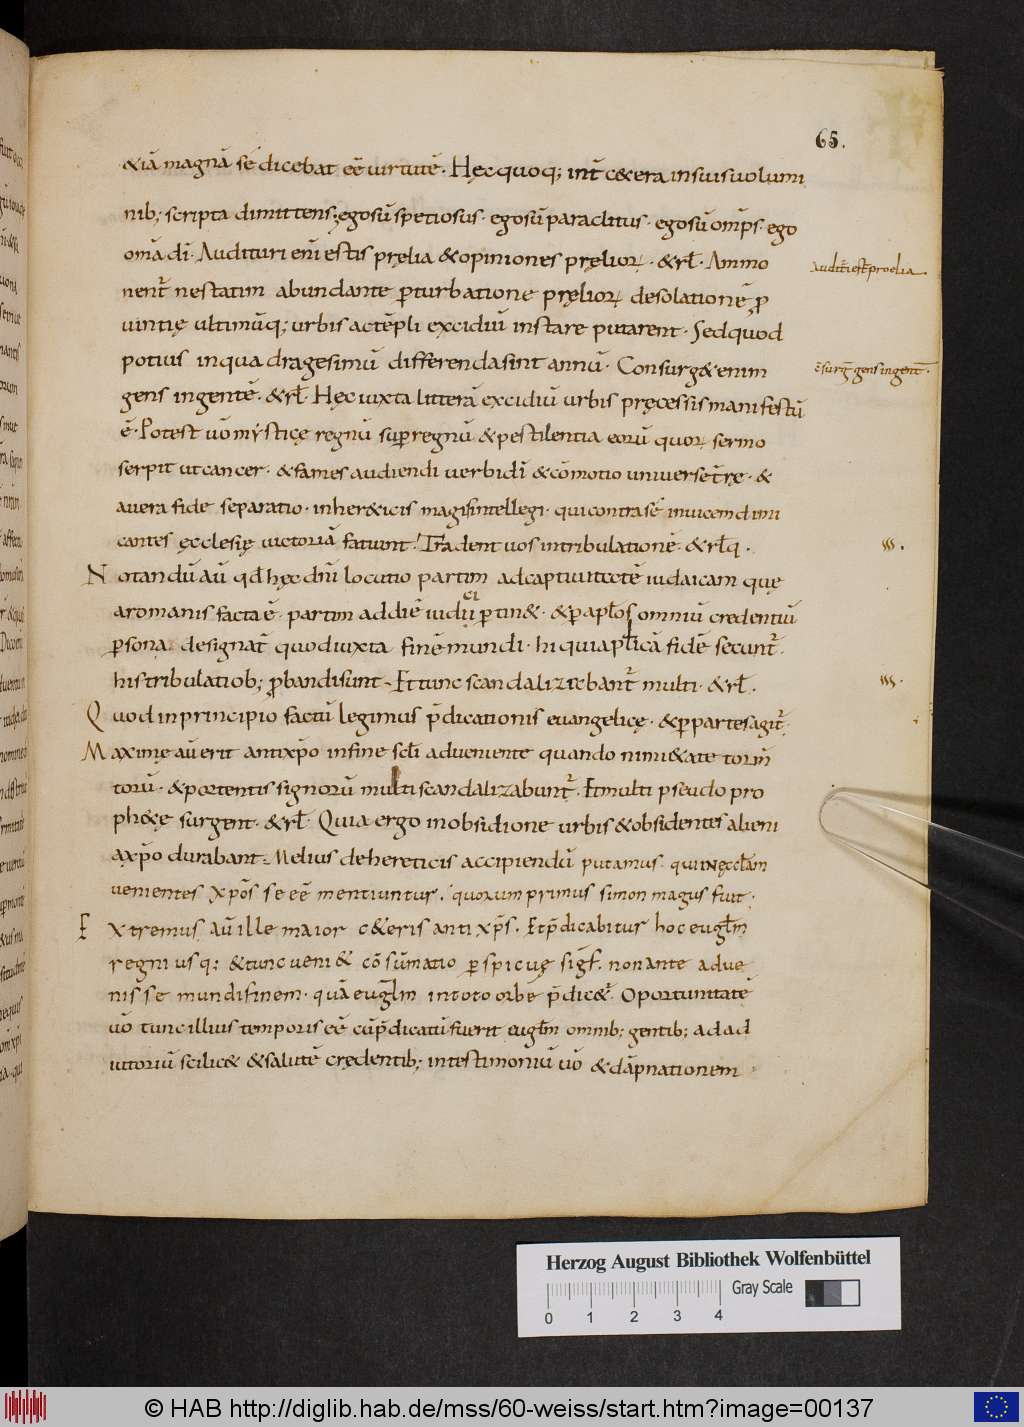 65.
&iā magnā se dicebat eē uirtutē. Hęc quoq; int̄ c&era insuis uolumi
nib; scripta dimittens; ego sū spetiosus. ego sū paraclitus. ego sū om̄ps. ego
om̄a dī. Audituri enī estis pręlia & opiniones pręlioꝝ. & rł. Ammo
nent̄ ne statim abundante ꝑturbatione pręlioꝝ desolationē ꝓ
uintię ultimūq; urbis ac tēpli excidiū instare putarent. Sed quod
potius in quadragesimū differenda sint annū. Consurg& enim
gens in gentē. & rł. Hęc iuxta litterā excidiū urbis pręcessis manifestū
ē. Potest uō mysticę regnū super regnū & pestilentia eorū quoꝝ sermo
serpit ut cancer. & fames audiendi uerbi dī & cōmotio uniuerse t̄rę. &
a uera fide separatio. in her&icis magis intellegi. qui contra sē inuicem dimi
cantes ęcclesię uictoriā fatiunt. Tradent uos in tribulationē. & rłq.
Notandū aū qđ hęc dnī locutio partim ad captiuitatē iudaicam quę
a romanis facta ē. partim ad diē iudicii ꝑtin&. & ꝑ apłos omniū credentiū
ꝑsona designat̄ quod iuxta finē mundi. hi qui apłicā fidē secunt̄.
his tribulatiob; ꝓbandi sunt. Et tunc scandalizabant̄ multi. & rł.
Quod in principio factū legimus p̄dicationis euangelicę. & ꝑ partes agit̄.
Maxime aū erit antixp̄o in fine scłi adueniente quando nimi&ate torm̄
torū. & portentis signorū multi scandalizabunt̄. Et multi pseudo pro
ph&ę surgent. & rł. Quia ergo in obsidione urbis & obsidentes alieni
a xp̄o durabant. Melius de hereticis accipiendū putamus. qui in ęccłam
uenientes xp̄os se eē mentiuntur. quorum primus simon magus fuit.
Extremus aū ille maior c&eris antixp̄s. Et p̄dicabitur hoc eugłm
regni usq; & tunc ueni& cōsūmatio ꝑspicuę sigf. non ante adue
nisse mundi finem. quā eugłm in toto orbe p̄dic&̄. Oportunitatē
uō tunc illius temporis eē cū p̄dicatū fuerit eugłm omnib; gentib; ad ad
iutoriū scilic& & salutē crędentib; in testimoniū uō & dāpnationem
audit̄i est proelia
ɔsurḡ gens in gent̄.
Herzog August Bibliothek Wolfenbüttel
Gray Scale
0 1 2 3 4
© HAB http://diglib.hab.de/mss/60-weiss/start.htm?image=00137